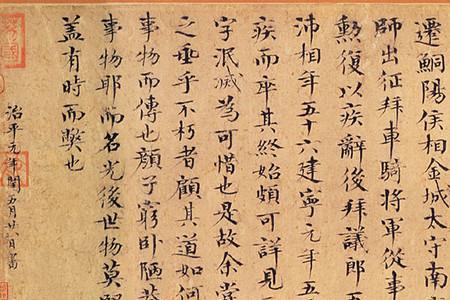 遷鮦陽侯相金城太守南
師出征拜車騎將軍從事
勳復以疾辭後拜議郎五
沛相年五十六建寧元年五
疾而卒其終始頗可詳見
字泯滅為可惜也是故余嘗
之垂乎不朽者顧其道如何
事物而傳也顏子窮卧陋巷
事物耶而名光後世物莫堅
蓋有時而弊也
治平元年閏五月廿八日書